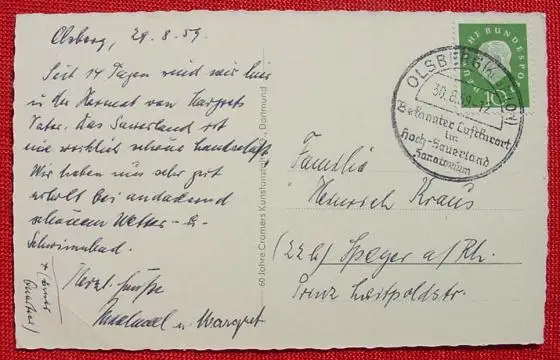 Olsberg, 29.8.59
Seit 14 Tagen sind wir hier
in der Heimat von Margrets
Vater. Das Sauerland ist
eine wirklich schöne Landschaft
Wir haben uns sehr gut
erholt bei andauernd
schönem Wetter - &
Schwimmbad.
Herzl. Grüße
u. Margret
60 Jahre Cramers Kunstanstalt Dortmund
DEUTSCHE BUNDESPOST
10
OLSBERG
30.8.59-12
Bekannter Luftkurort
im
Hoch-Sauerland
Sanatorium
Familie
Heinrich Kraus
(22b) Speyer a/Rh.
Prinz Luitpoldstr.